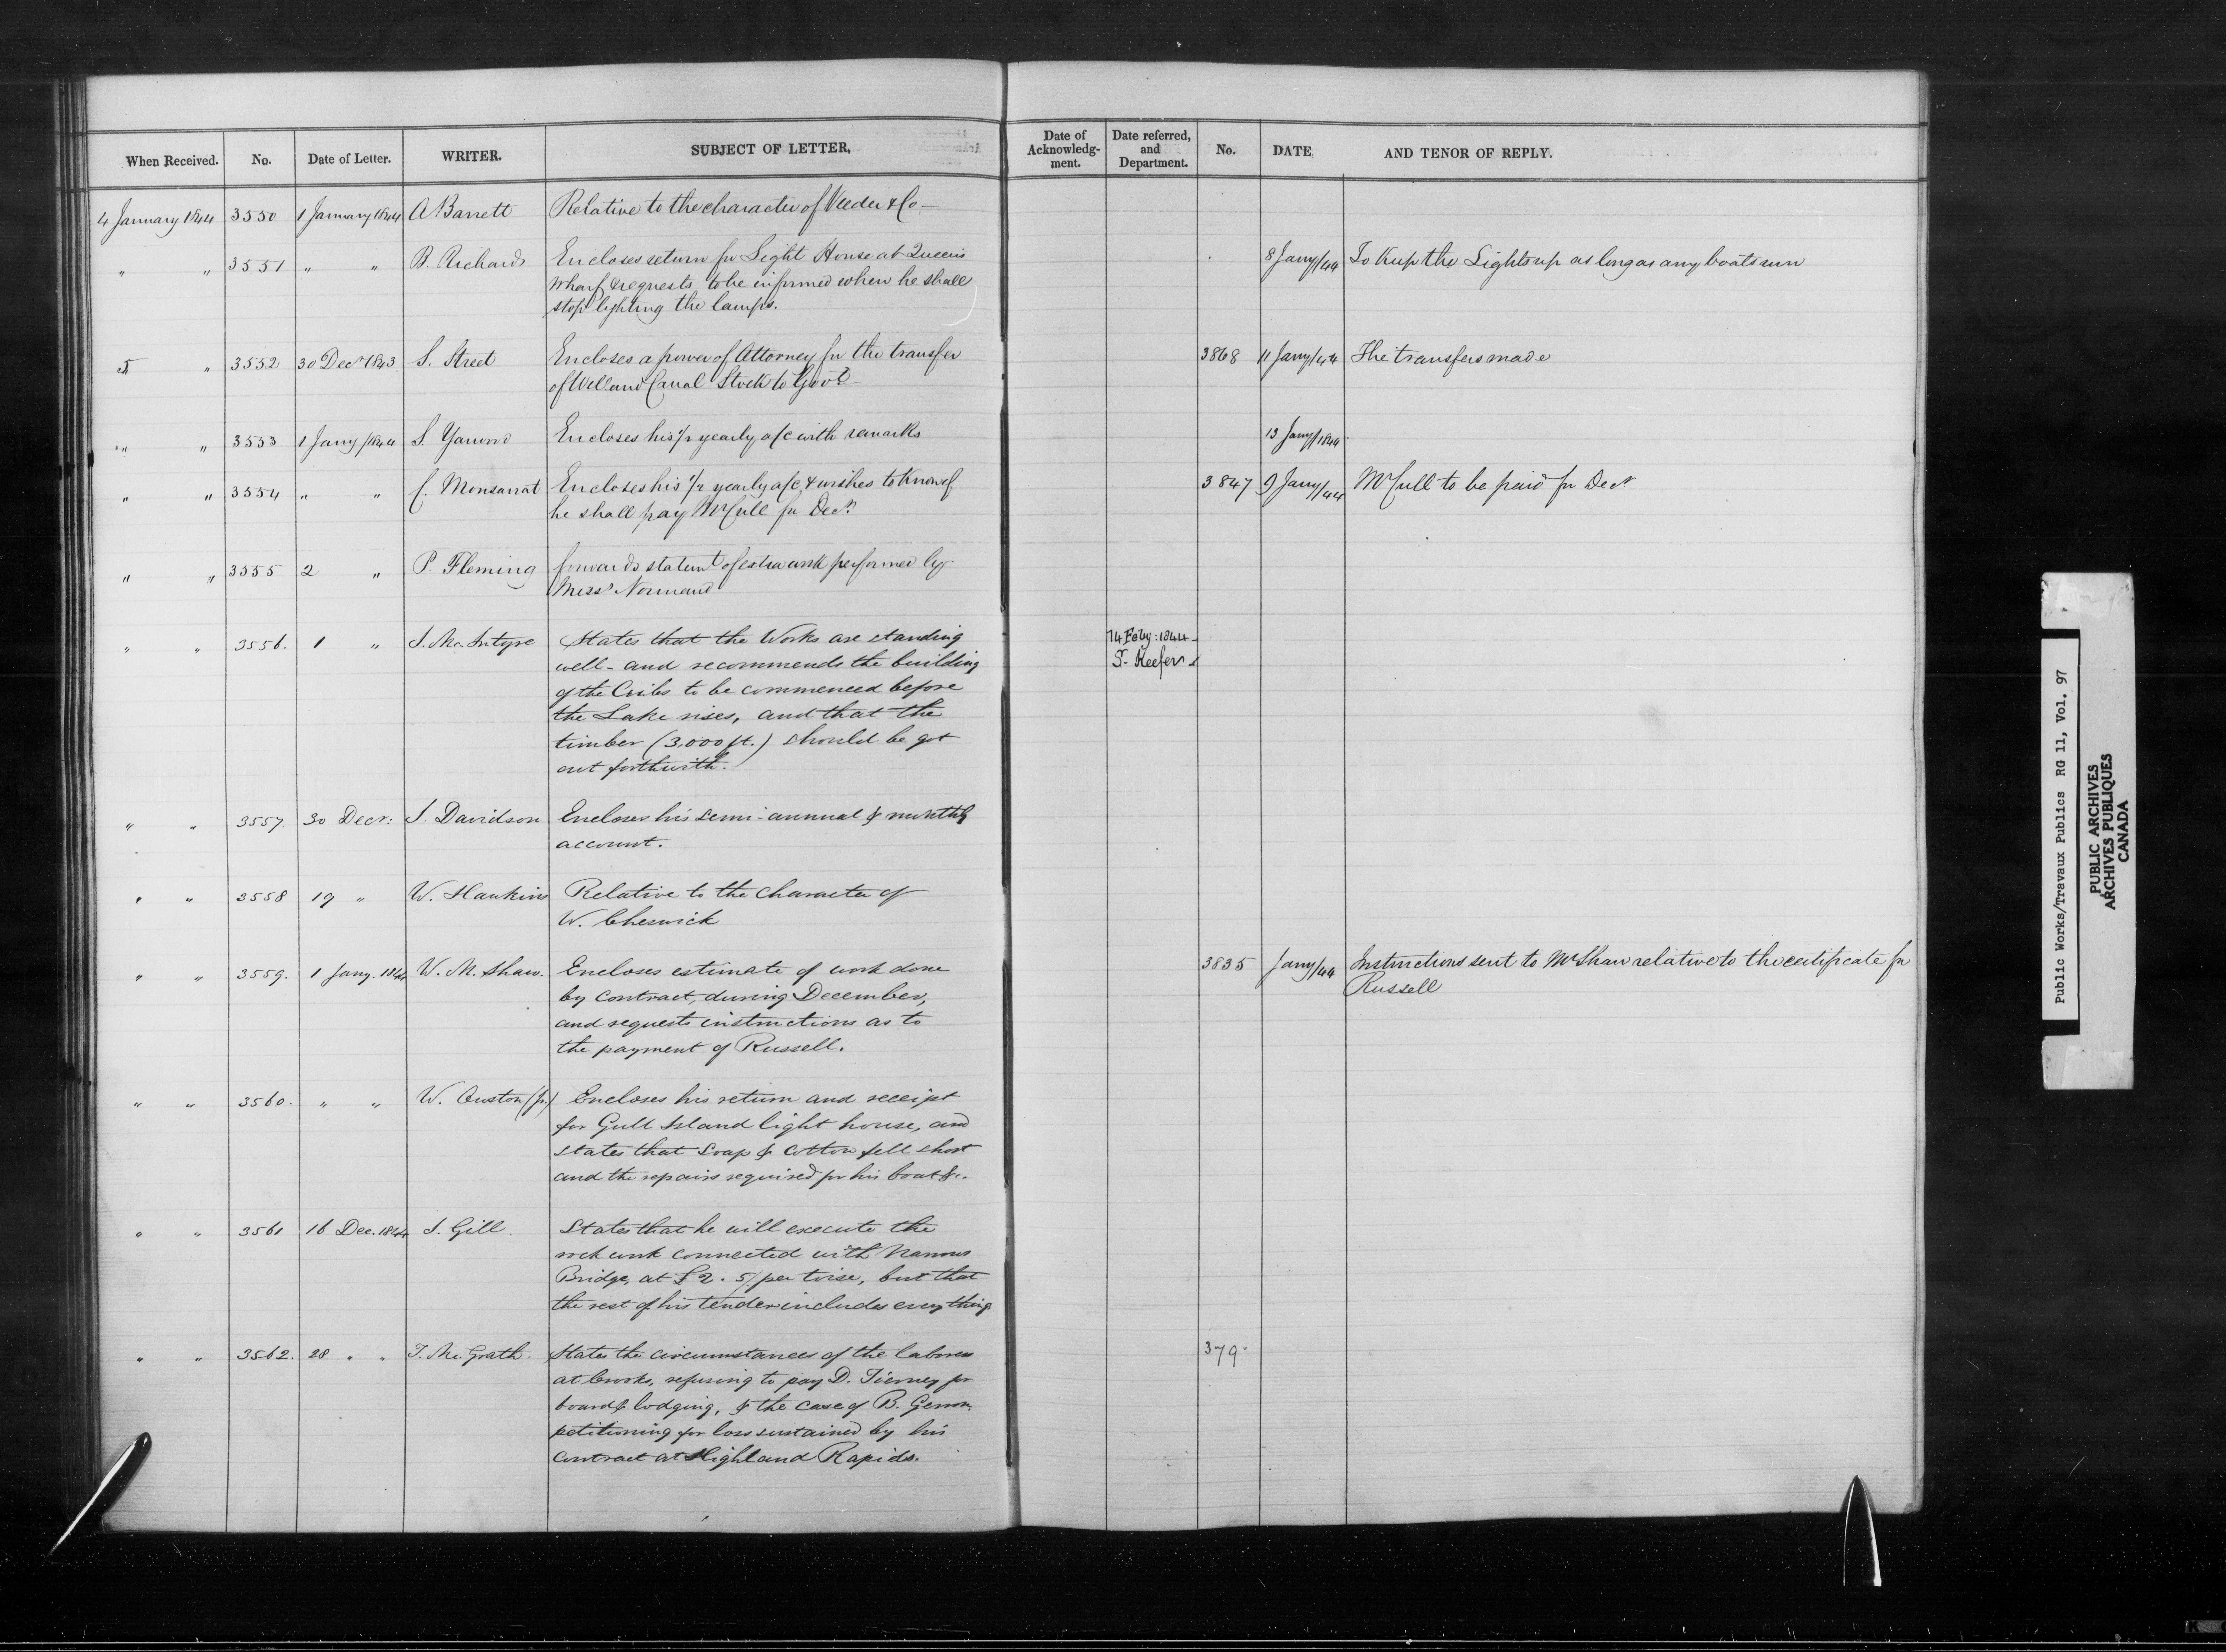 When Received. No. Date of Letter. WRITER. SUBJECT OF LETTER,
Date of Acknowledg-ment. Date referred, and Department. No. DATE, AND TENOR OF REPLY.
4 January 1844 3550 1 January 1844 A Barrett Relative to the character of Veeder & Co —
" " 3551 " " B. Richards Encloses return for Light House at Queens 8 Jany/44 To Keep the Lights up as long as any boats run
Wharf & requests to be informed when he shall
stop lighting the lamps.
5 " 3552 30 Decr 1843 S. Street Encloses a power of Attorney for the transfer 3868 11 Jany/44 The transfers made
of Welland Canal Stock to Govt
" " 3553 1 Jany/1844 S. Yarwood Encloses his ½ yearly a/c with remarks 13 Jany/1844
" " 3554 " " C. Monsarrat Encloses his ½ yearly a/c & wishes to know if 3847 9 Jany/44 McCull to be paid for Decr
he shall pay McCull for Decr
" " 3555 2 " P. Fleming forwards statemt of extra work performed by
Messrs Normand
" " 3556. 1 " J. McIntyre States that the Works are standing 14 Feby: 1844
well - and recommends the building S. Keefer
of the Cribs to be commenced before
the Lake rises, and that the
timber (3,000 ft.) should be got
out forthwith.
" " 3557 30 Decr: J. Davidson Encloses his semi-annual & monthly
account.
" " 3558 19 " W. Hawkins Relative to the character of
W. Cheswick
" " 3559. 1 Jany. 1844 W. M. Shaw. Encloses estimate of work done 3835 Jany/44 Instructions sent to Mr Shaw relative to the certificate for
by contract, during December, Russell
and requests instructions as to
the payment of Russell.
" " 3560. " " W. (jr.) Encloses his return and receipt
for Gull Island light house, and
states that Soap & Cotton fell short
and the repairs required for his boat &c.
" " 3561 16 Dec. 1844 J. Gill. States that he will execute the
rock work connected with
Bridge, at £2. 5/ per toise, but that
the rest of his tender includes everything
" " 3562. 28 " " T. McGrath. States the circumstances of the labores 379
at Crooks, refusing to pay D. Tierney for
board & lodging, & the case of B.
petitioning for loss sustained by his
contract at Highland Rapids.
Public Works/Travaux Publics RG 11, Vol. 97
PUBLIC ARCHIVES
ARCHIVES PUBLIQUES
CANADA